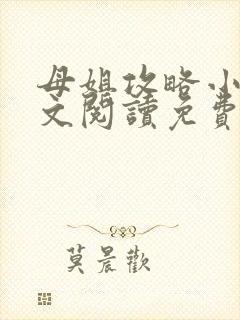 母姐攻略小
文閱讀免費
莫晨歡